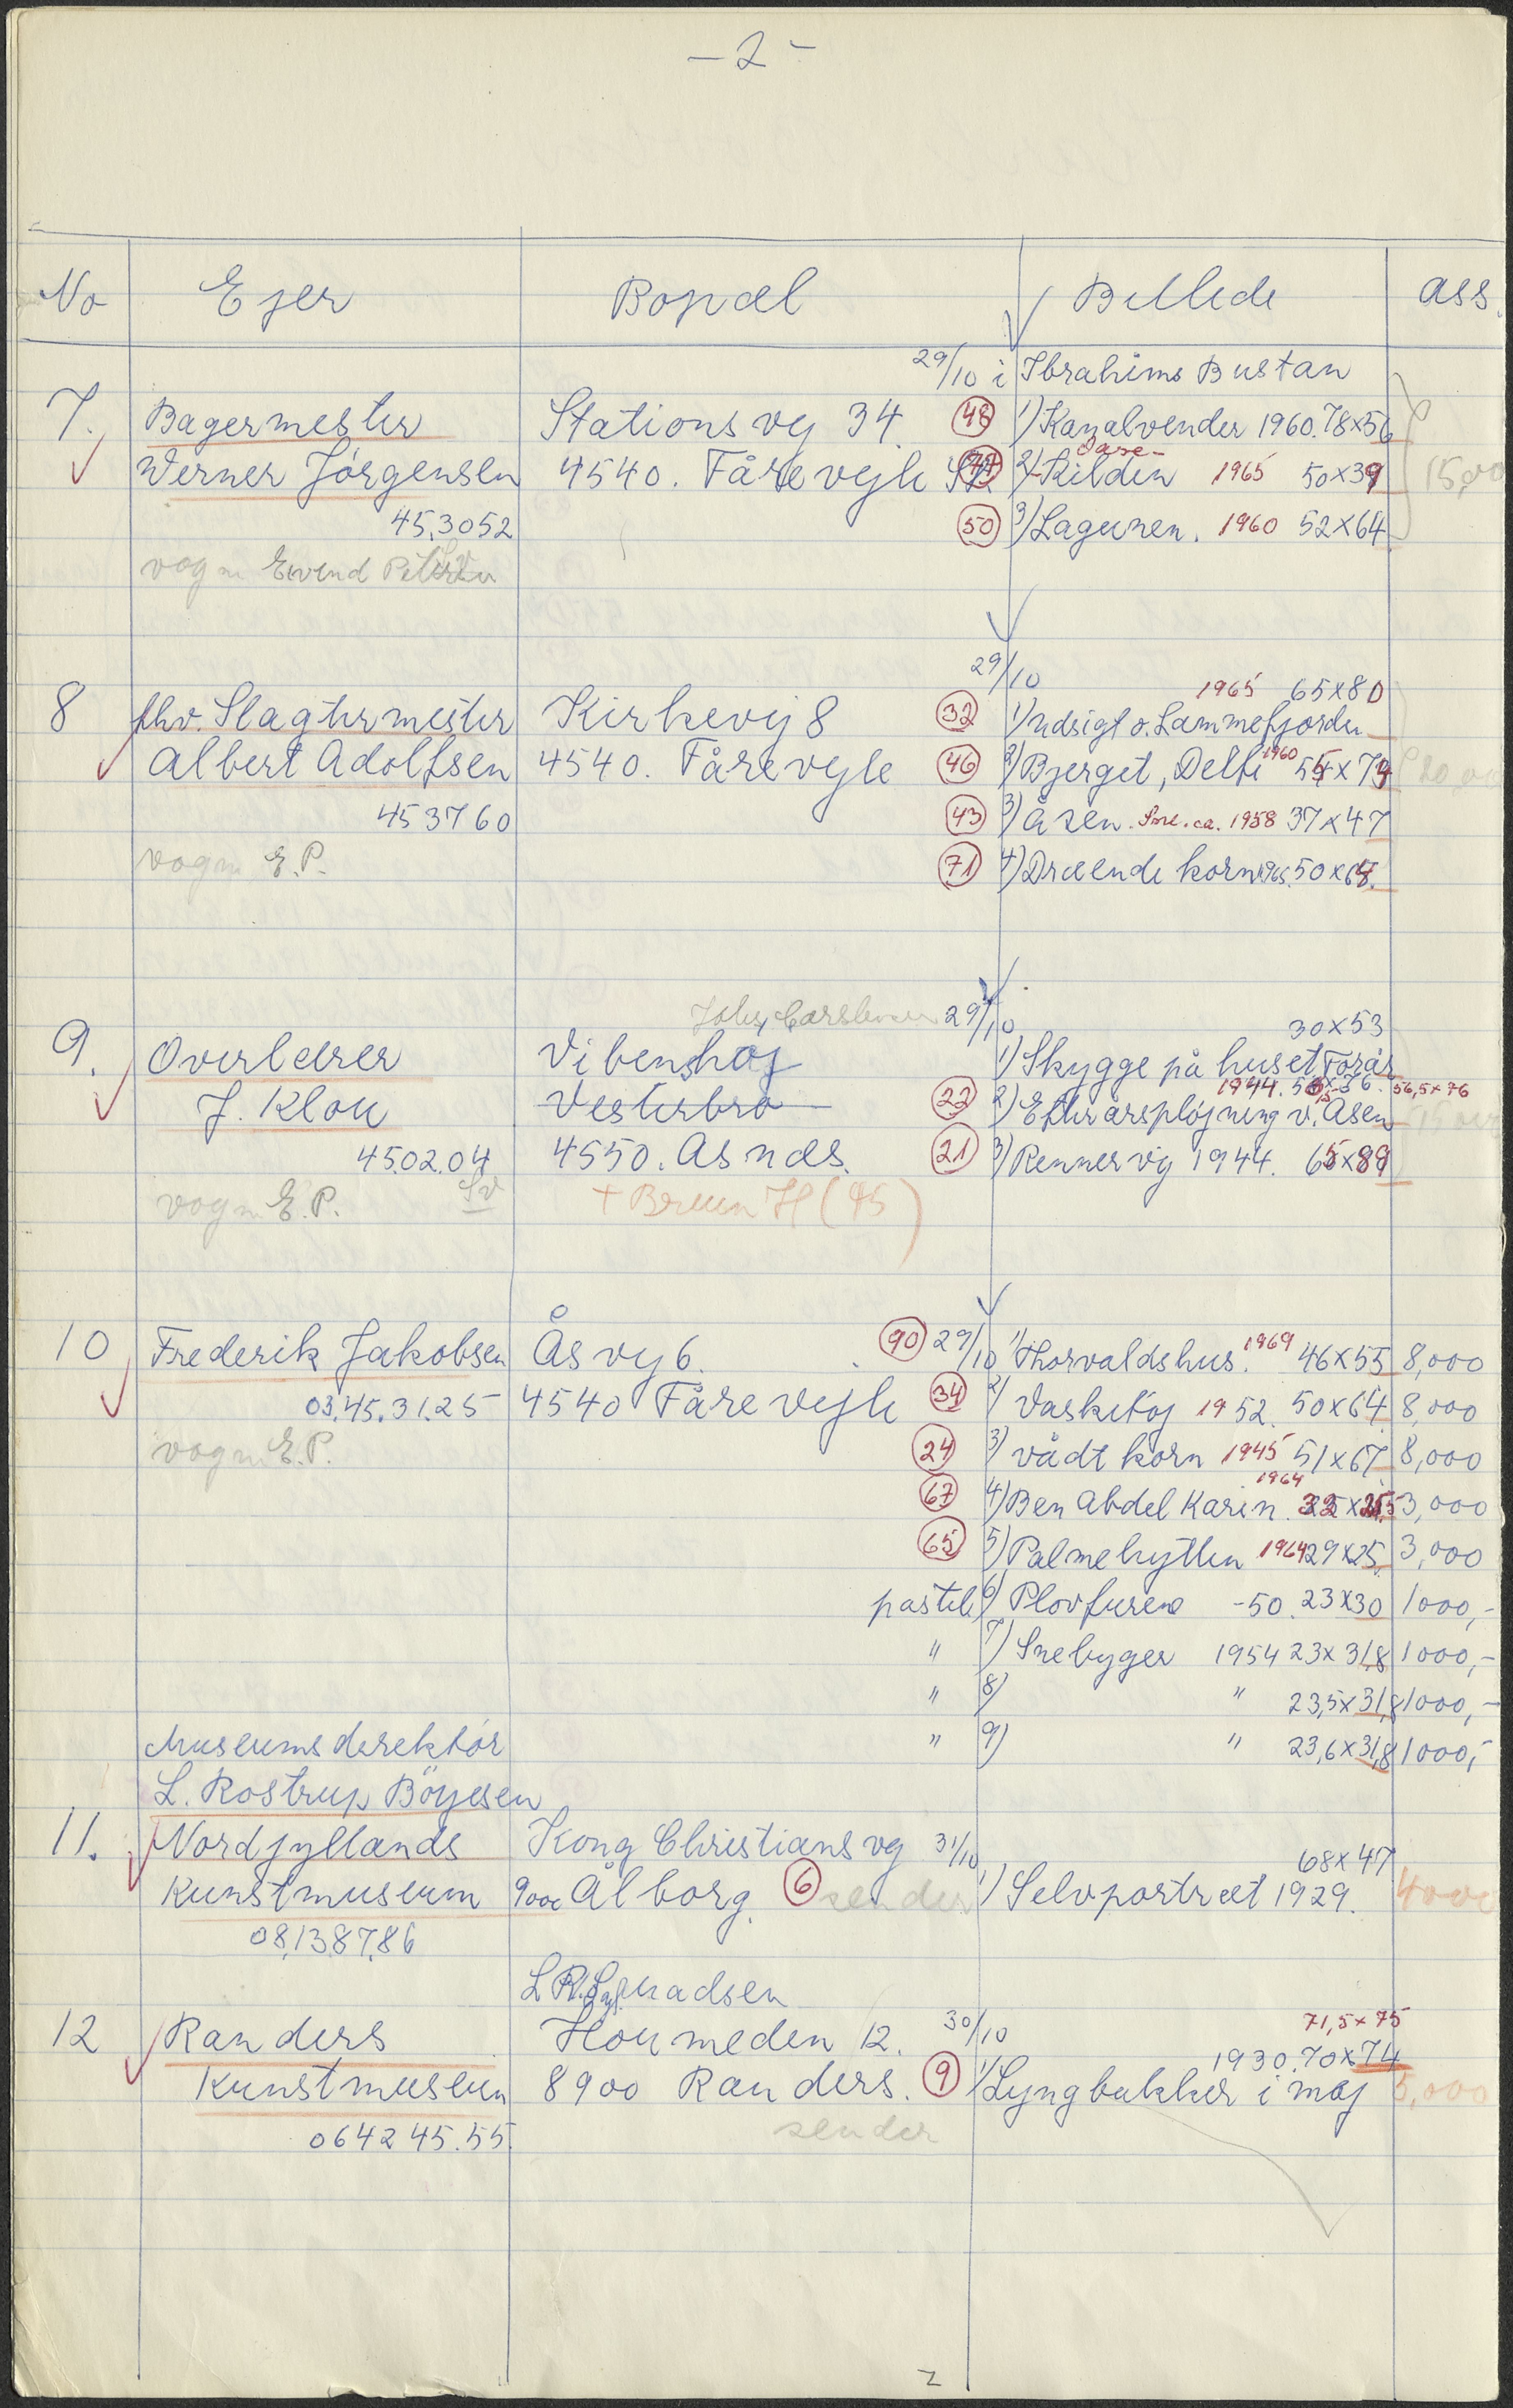 - 2 -
No Ejer Bopæl Billede ass.
29/10 i Ibrahims Bustan
7. Bagermester Stations vej 34. 48 1) Kanalvender 1960. 78x56
Oase-
Werner Jörgensen 4540. Fårevejle 2) Kilden 1965 50x39 15,00
45,3052 50 3) Lagunen. 1960 52x64
vogn Eivend Petersen
29/10
1965 65x80
8 fhv. Slagtermester Kirkevej 8 32 1) Udsigt o. Lammefjorden
Albert Adolfsen 4540. Fårevejle 46 2) Bjerget, Delfi 1960 54x79 20,00
453760 43 3) Åsen. Sne. ca. 1958 37x47
vogn E.P. 71 4) Dræende korn 1965. 50x64.
29/10
30x53
9. Overlærer Vibenshøj 1) Skygge på huset Forår
1944. 56x76. 56,5x76
J. Klou Vesterbro 22 2) Efterårspløjning v. Åsen
4502.04 4550. Asnæs. 21 3) Rennervej 1944. 65x89
vogn E.P. Sv + Breum H (45)
10 Frederik Jakobsen Åsvej 6. 90 29/10 1) Thorvaldshus. 1969 46x55 8,000
03.45.31.25 4540 Fårevejle 34 2) Vasketøj 1952. 50x64 8,000
vogn E.P. 24 3) vådt korn 1945 51x67 8,000
1964
67 4) Ben Abdel Karin. 3,000
65 5) Palmehytten 1964 29x25 3,000
pastel 6) Plovfurene -50. 23x30 1000,-
" 7) Snebyger 1954 23x31,8 1000,-
" 8) " 23,5x31,8 1000,-
Museumsdirektør " 9) " 23,6x31,8 1000,-
L. Rostrup Böyesen
11. Nordjyllands Kong Christians vej 31/10
68x47
Kunstmuseum 9000 Ålborg. 6 sender 1) Selvportræt 1929. 4000
08,13,87,86
L.R. Sgf. Madsen
12 Randers Houmeden 12. 30/10 71,5x75
1930. 70x74
Kunstmuseum 8900 Randers. 9 1) Lyngbakker i maj 5,000
0642 45.55. sender
2